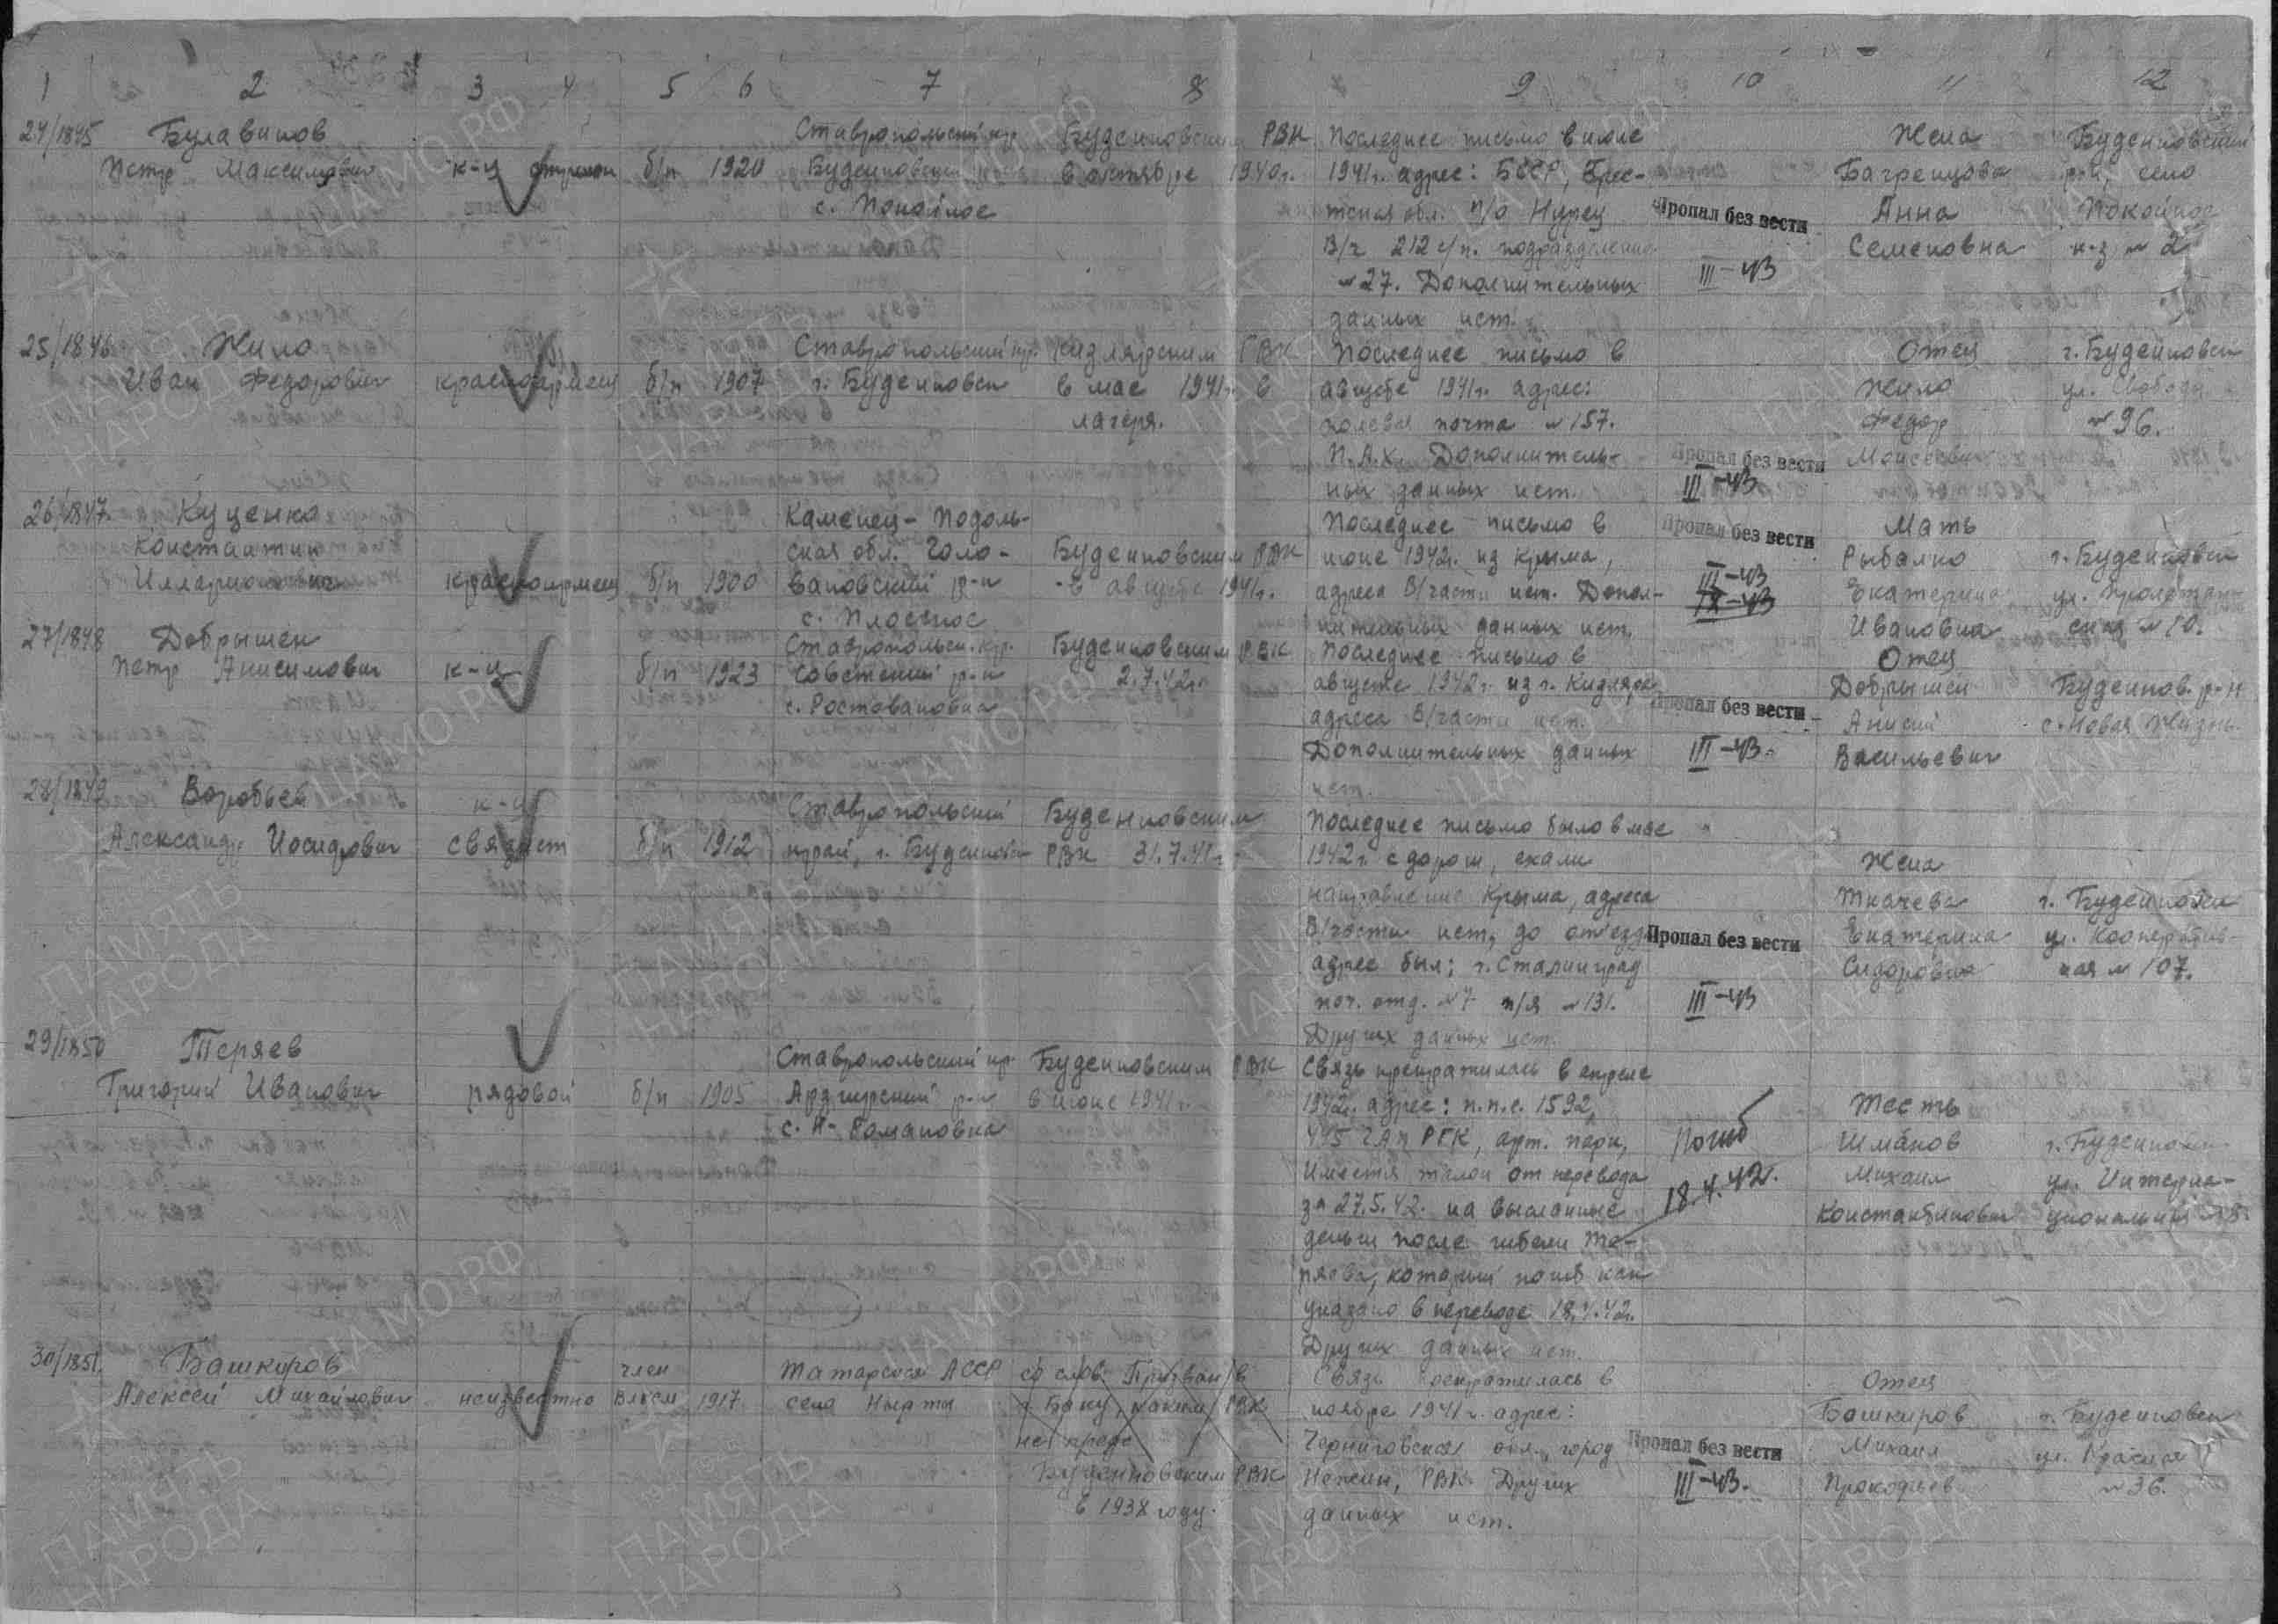 1 2 3 4 5 6 7 8 9 10 11 12
24/1845 Булавинов
Петр Максимович
к-ц стрелок
б/п 1920
Ставропольский кр.
Буденновский
с. Покойное
Буденновским РВК
в октябре 1940г.
Последнее письмо в июне
1941г. адрес: БССР, Брес-
тская обл. п/о Нурец
В/ч 212 с/п. подразделение
№27. Дополнительных
данных нет.
Пропал без вести
III-43
Жена
Багренцова
Анна
Семеновна
Буденновский
р-н, село
Покойное
к-з № 2
25/1846 Жило
Иван Федорович
красноармеец
б/п 1907
Ставропольский кр.
г. Буденновск
Кизлярским РВК
в мае 1941г. в
лагеря.
Последнее письмо в
августе 1941г. адрес:
полевая почта №157.
П.А.Х. Дополнитель-
ных данных нет.
Пропал без вести
III-43
Отец
Жило
Федор
Моисеевич
г. Буденновск
ул. Свободы
№96.
26/1847. Куценко
Константин
Илларионович
красноармеец
б/п 1900
Каменец-Подоль-
ская обл. Голо-
вановский р-н
с. Плоское
Буденновским РВК
в августе 1941г.
Последнее письмо в
июне 1942г. из Крыма,
адреса В/части нет. Допол-
нительных данных нет.
Пропал без вести
III-43
IX-43
Мать
Рыбалко
Екатерина
Ивановна
г. Буденновск
ул. Пролетар-
ская №10.
27/1848 Добрышен
Петр Анисимович
к-ц
б/п 1923
Ставропольск. кр.
Советский р-н
с. Ростовановка
Буденновским РВК
2.7.42г.
Последнее письмо в
августе 1942г. из г. Кизляра
адреса В/части нет.
Дополнительных данных
нет.
Пропал без вести
III-43.
Отец
Добрышен
Анисий
Васильевич
Буденнов. р-н
с. Новая Жизнь.
28/1849 Воробьев
Александр Иосифович
к-ц
связист
б/п 1912
Ставропольский
край, г. Буденновск
Буденновским
РВК 31.7.41г.
Последнее письмо было в мае
1942г. с дороги, ехали
направление Крыма, адреса
В/части нет, до отъезда
адрес был: г. Сталинград
поч. отд. №7 п/я №131.
Других данных нет.
Пропал без вести
III-43
Жена
Ткачева
Екатерина
Сидоровна
г. Буденновск
ул. Кооператив-
ная №107.
29/1850 Теряев
Григорий Иванович
рядовой
б/п 1905
Ставропольский кр.
Арзгирский р-н
с. Н-Романовка
Буденновским РВК
в июне 1941г.
Связь прекратилась в апреле
1942г. адрес: п.п.с. 1592,
ГАП РГК, арт. парк,
Имеется талон от перевода
за 27.5.42. на высланные
деньги после гибели Те-
ряева, который погиб как
указано в переводе 18.4.42г.
Других данных нет.
Погиб
18.4.42.
Тесть
Шманов
Михаил
Константинович
г. Буденновск
ул. Интерна-
циональная
30/1851. Башкиров
Алексей Михайлович
неизвестно
член
ВЛКСМ 1917
Татарская АССР
село Нырты
со слов: Призван в
г. Баку, каким РВК
не
Буденновским РВК
в 1938 году.
Связь прекратилась в
ноябре 1941г. адрес:
Черниговская обл., город
Нежин, РВК. Других
данных нет.
Пропал без вести
III-43.
Отец
Башкиров
Михаил
Прокофьев
г. Буденновск
ул. Красная
№36.
ПАМЯТЬ НАРОДА
ЦАМО.РФ